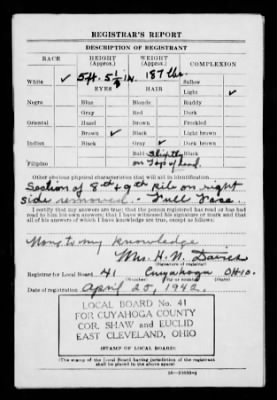 REGISTRAR'S REPORT
DESCRIPTION OF REGISTRANT
RACE HEIGHT (Approx.) WEIGHT (Approx.) COMPLEXION
White ✓ 5 ft. 5 1/2 in. 187 lbs. Sallow
EYES HAIR Light ✓
Negro Blue Blonde Ruddy
Gray Red Dark
Oriental Hazel Brown Freckled
Brown ✓ Black Light brown
Indian Black Gray ✓ Dark brown
Bald Slightly Black
Filipino on Top of head.
Other obvious physical characteristics that will aid in identification
Section of 8th & 9th Rib on right
side removed. - Full Face.
I certify that my answers are true; that the person registered has read or has had
read to him his own answers; that I have witnessed his signature or mark and that
all of his answers of which I have knowledge are true, except as follows:
None to my knowledge
Mrs. H. N.
(Signature of registrar)
Registrar for Local Board 41 Cuyahoga OHIO.
Date of registration April 25, 1942.
LOCAL BOARD No. 41
FOR CUYAHOGA COUNTY
COR. SHAW and EUCLID
EAST CLEVELAND, OHIO
(STAMP OF LOCAL BOARD)
(The stamp of the Local Board having jurisdiction of the registrant
shall be placed in the above space)